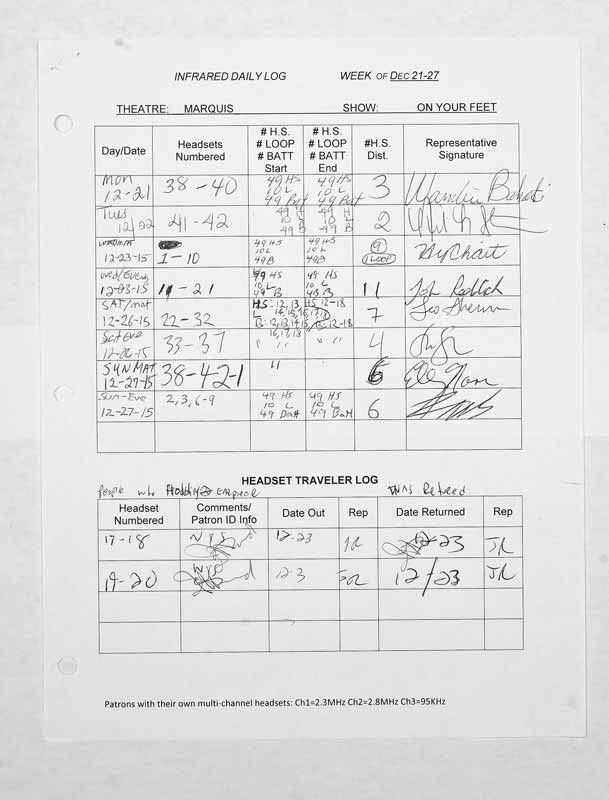 INFRARED DAILY LOG WEEK OF DEC 21-27
THEATRE: MARQUIS SHOW: ON YOUR FEET
Day/Date
Headsets
Numbered
# H.S.
# LOOP
# BATT
Start
# H.S.
# LOOP
# BATT
End
#H.S.
Dist.
Representative
Signature
Mon
12-21
38-40
49 HS
10 L
49 Bat
49 HS
10 L
49 Bat
3
Tues
12/22
41-42
49 H
10 L
49 B
49 H
10 L
49 B
2
12-23-15
1-10
49 HS
10 L
49 B
49 HS
10 L
49 B
9
1 LOOP
Wed/Eve
12-23-15
11-21
49 HS
10 L
49 B
49 HS
10 L
48 B
11
SAT/mat
12-26-15
22-32
HS: 12, 13,
HS 12-18
7
Sat Eve
12-26-15
33-37
" "
" "
4
SUN MAT
12-27-15
38-42-1
"
6
Sun-Eve
12-27-15
2, 3, 6-9
49 HS
10 L
49 Batt
49 HS
10 L
49 Batt
6
HEADSET TRAVELER LOG
People who Holding Earpiece Was Retured
Headset
Numbered
Comments/
Patron ID Info
Date Out
Rep
Date Returned
Rep
17-18
NYS
12-23
JR
12-23
JR
19-20
NYS
12-3
JR
12/23
JR
Patrons with their own multi-channel headsets: Ch1=2.3MHz Ch2=2.8MHz Ch3=95KHz